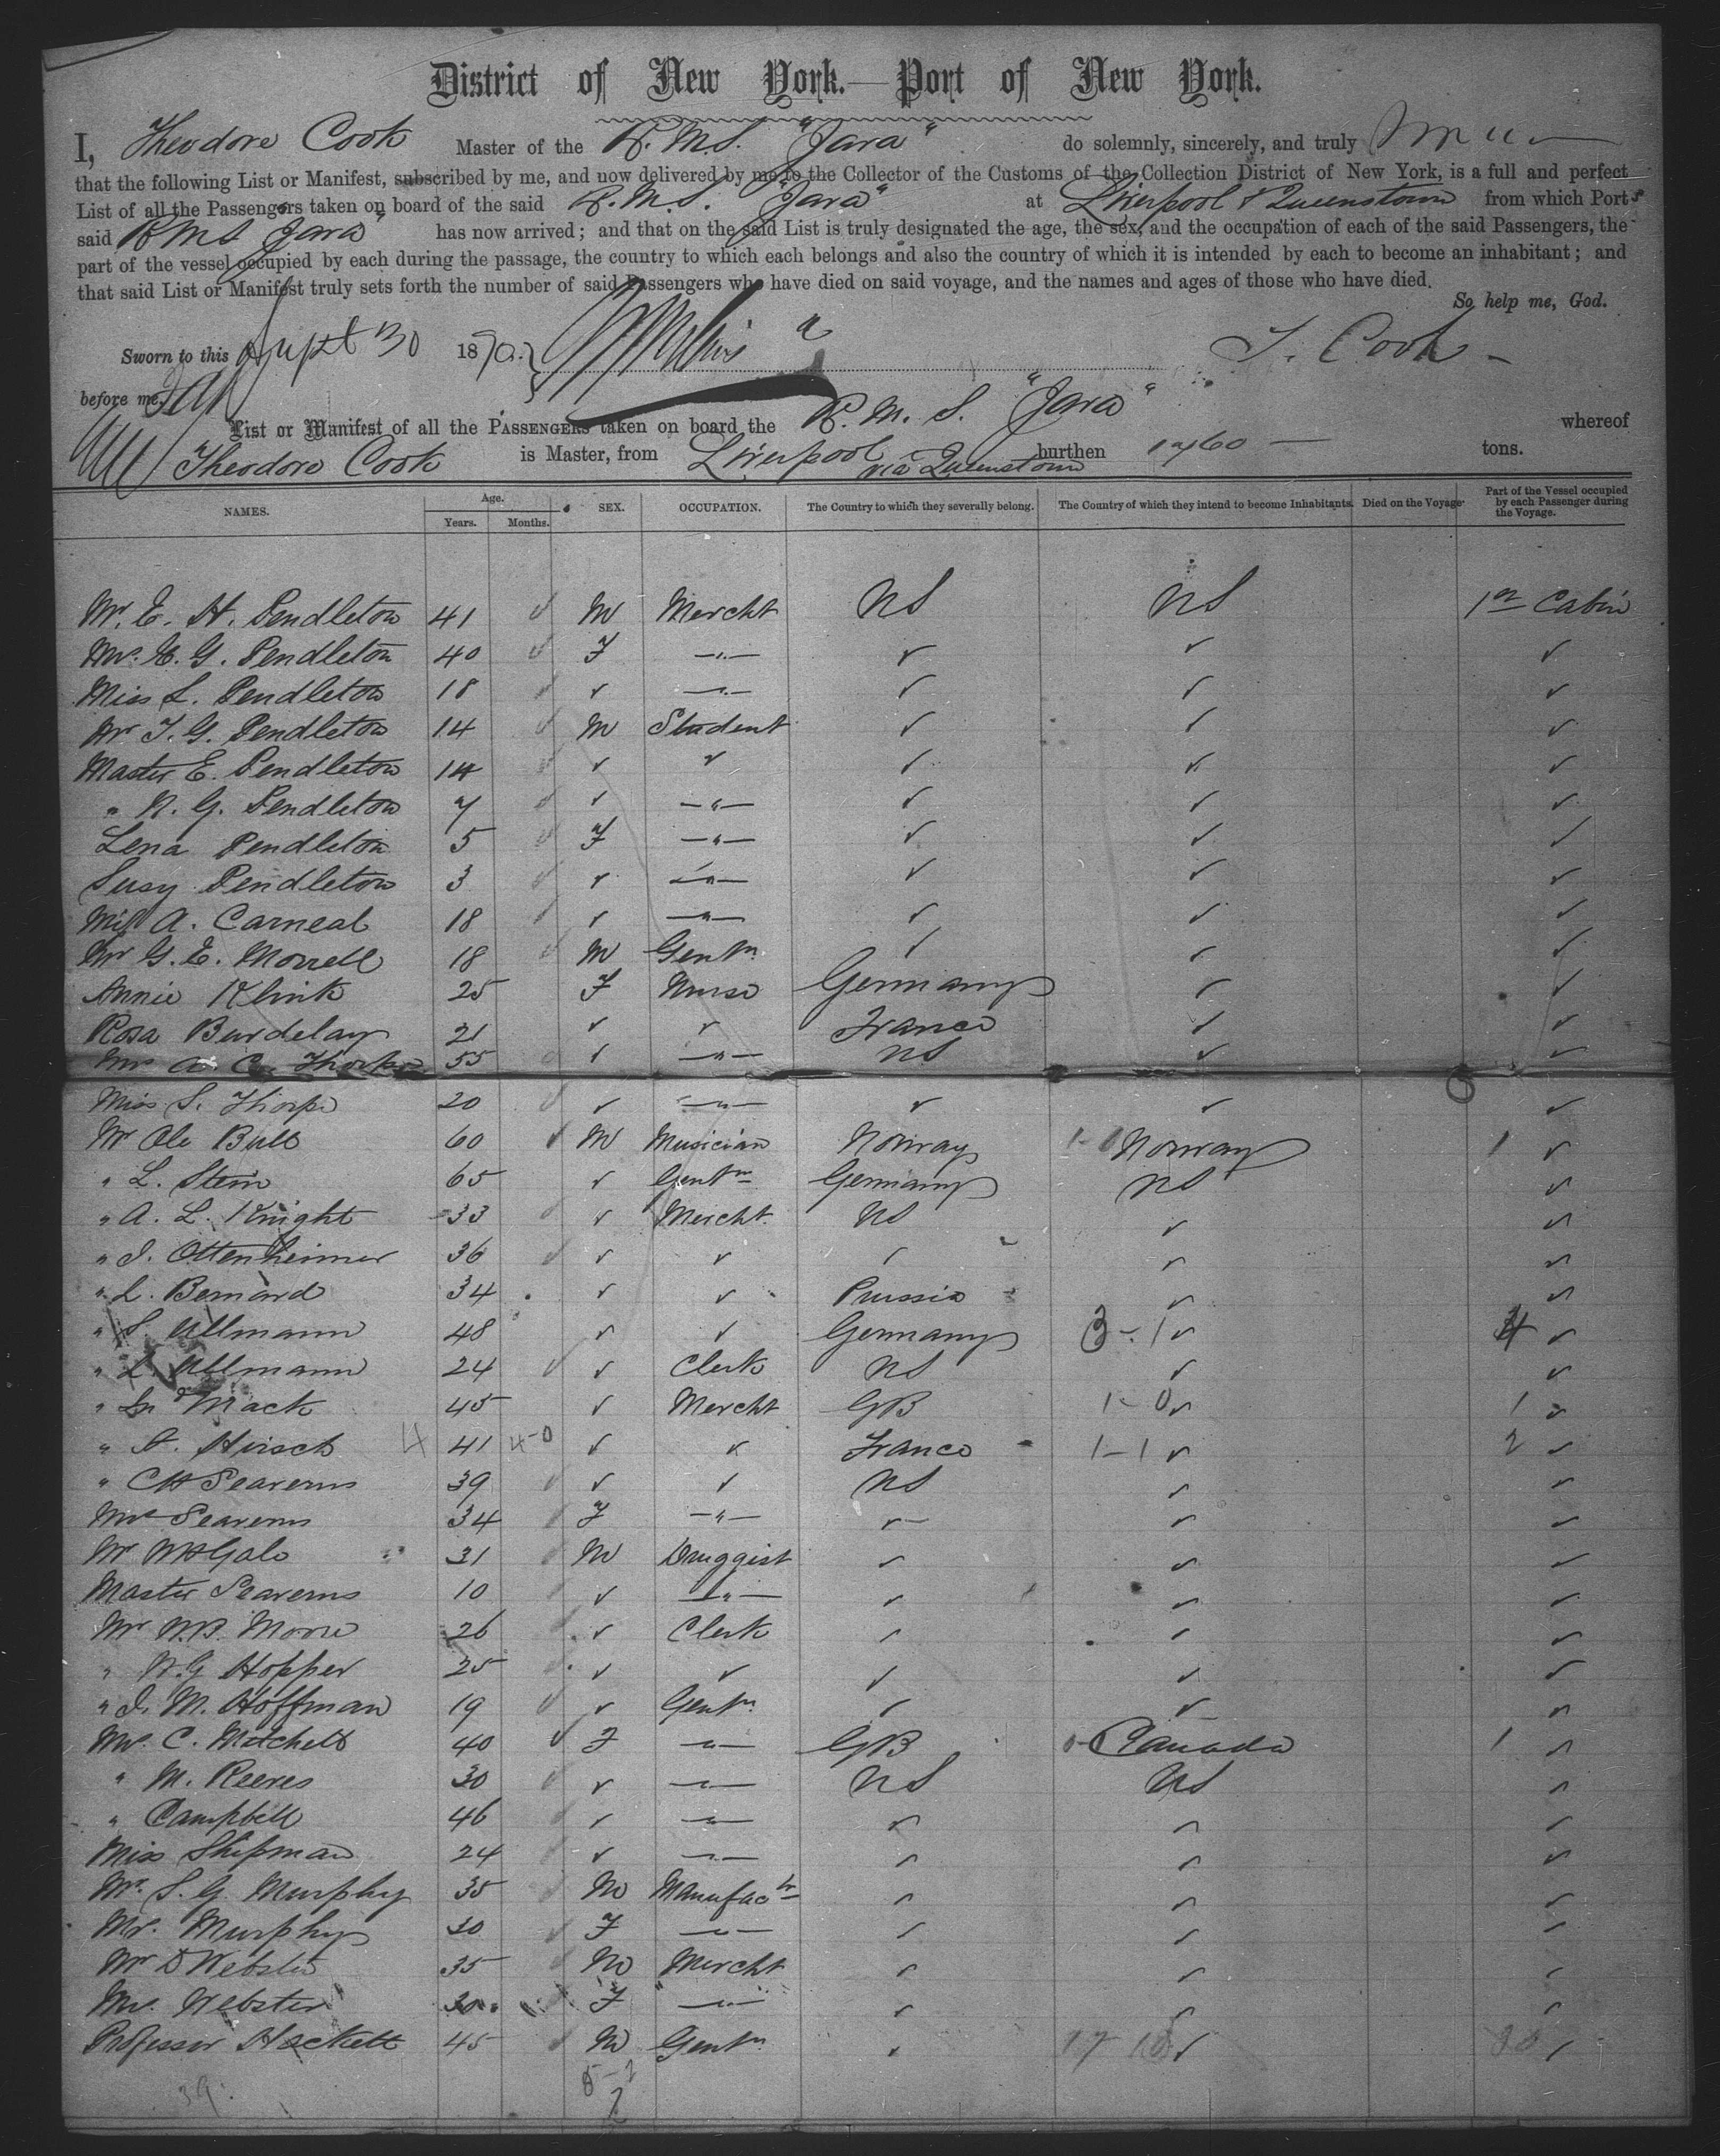 District of New York.—Port of New York.
I, Theodore Cook Master of the R.M.S. "Java" do solemnly, sincerely, and truly
that the following List or Manifest, subscribed by me, and now delivered by me to the Collector of the Customs of the Collection District of New York, is a full and perfect
List of all the Passengers taken on board of the said R.M.S. "Java" at Liverpool & Queenstown from which Ports
said RMS Java has now arrived; and that on the said List is truly designated the age, the sex, and the occupation of each of the said Passengers, the
part of the vessel occupied by each during the passage, the country to which each belongs and also the country of which it is intended by each to become an inhabitant; and
that said List or Manifest truly sets forth the number of said Passengers who have died on said voyage, and the names and ages of those who have died.
So help me, God.
Sworn to this Sept 30 1870. T. Cook
before me
List or Manifest of all the PASSENGERS taken on board the R. M. S. "Java" whereof
Theodore Cook is Master, from Liverpool via Queenstown burthen 1760 — tons.
NAMES. Age. Years. Months. SEX. OCCUPATION. The Country to which they severally belong. The Country of which they intend to become Inhabitants. Died on the Voyage. Part of the Vessel occupied by each Passenger during the Voyage.
Mr. E. H. Pendleton 41 M Mercht US US 1st Cabin
Mrs. E. G. Pendleton 40 F —"— ✓ ✓ ✓
Miss L. Pendleton 18 ✓ —"— ✓ ✓ ✓
Mr T. G. Pendleton 14 M Student ✓ ✓ ✓
Master E. Pendleton 14 ✓ ✓ ✓ ✓ ✓
" N. G. Pendleton 7 ✓ —"— ✓ ✓ ✓
Lena Pendleton 5 F —"— ✓ ✓ ✓
Susy Pendleton 3 ✓ —"— ✓ ✓ ✓
Miss A. Carneal 18 ✓ —"— ✓ ✓ ✓
Mr G. E. Morrell 18 M Gentn. ✓ ✓ ✓
Annie Klink 25 F Nurse Germany ✓ ✓
Rosa Burdelay 21 ✓ ✓ France ✓ ✓
Mrs A. C. Thorpe 55 ✓ —"— US ✓ ✓
Miss S. Thorpe 20 ✓ —"— ✓ ✓ ✓
Mr Ole Bull 60 M Musician Norway Norway 1 ✓
" L. Stein 65 ✓ Gentn Germany US ✓
" A. L. Knight 33 ✓ Mercht. US ✓ ✓
" I. Ottenheimer 36 ✓ ✓ ✓ ✓ ✓
" L. Bernard 34 ✓ ✓ Prussia ✓ ✓
" S. Ullmann 48 ✓ ✓ Germany 3-1 ✓ 4 ✓
" L. Ullmann 24 ✓ Clerk US ✓ ✓
" Mack 45 ✓ Mercht GB 1-0 ✓ 1 ✓
" Hirsch 4 41 4-0 ✓ ✓ France 1-1 ✓ 2 ✓
" CH Seaverns 39 ✓ ✓ US ✓ ✓
Mrs Seaverns 34 F —"— ✓ ✓ ✓
Mr WH Gale 31 M Druggist ✓ ✓ ✓
Master Seaverns 10 ✓ —"— ✓ ✓ ✓
Mr W.B. Moore 26 ✓ Clerk ✓ ✓ ✓
" W.G Hopper 25 ✓ ✓ ✓ ✓ ✓
" I. M. Hoffman 19 ✓ Gentn. ✓ ✓ ✓
Mrs. C. Mitchell 40 F —"— GB Canada 1 ✓
" M. Reeves 30 ✓ —"— US US ✓
" Campbell 46 ✓ —"— ✓ ✓ ✓
Miss Shipman 24 ✓ —"— ✓ ✓ ✓
Mr. S. G. Murphy 35 M Manufactr ✓ ✓ ✓
Mrs. Murphy 30 F —"— ✓ ✓ ✓
Mr D Webster 35 M Mercht ✓ ✓ ✓
Mrs. Webster 30 F —"— ✓ ✓ ✓
Professor Hackett 45 M Gentn. ✓ ✓ ✓
39